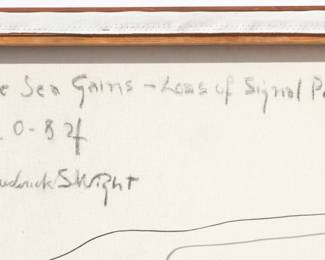 e Sea Gains - Loss of Signal P
0-82
Frederick S. Wight